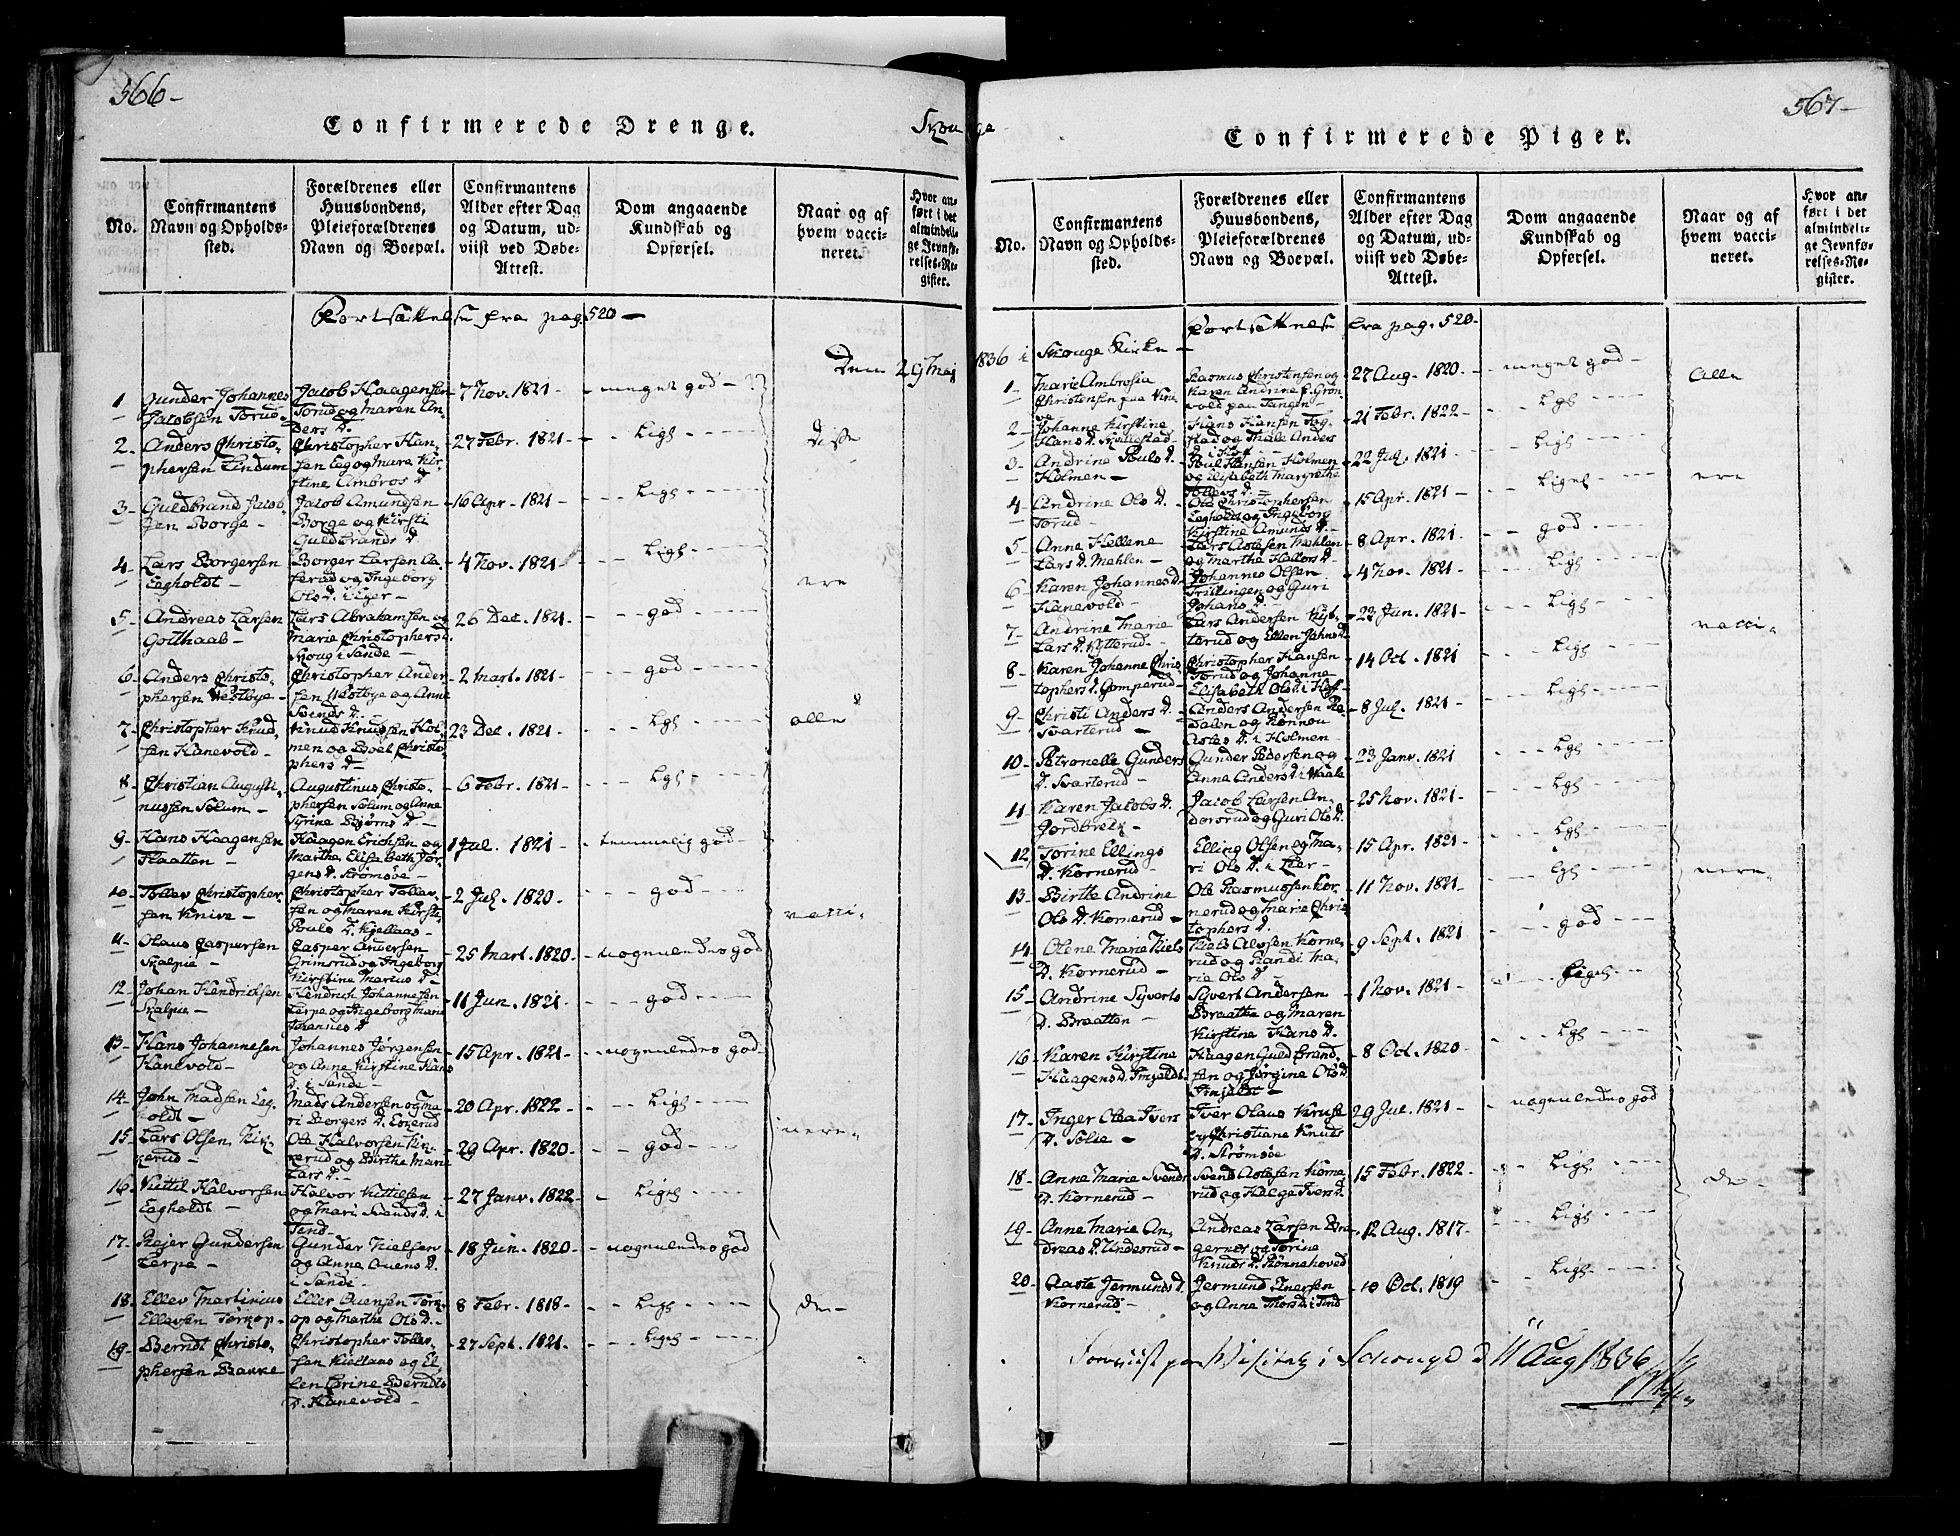 566-
Confirmerede Drenge.
Skouge
No.
Confirmantens
Navn og Opholds-
sted.
Forældrenes eller
Huusbondens,
Pleieforældrenes
Navn og Boepæl.
Confirmantens
Alder efter Dag
og Datum, ud-
viist ved Døbe-
Attest.
Dom angaaende
Kundskab og
Opførsel.
Naar og af
hvem vacci-
neret.
Hvor an-
ført i det
almindeli-
ge Jevnfø-
relses-Re-
gister.
Fortsættelse fra pag. 520 -
Den 29 Maj 1836 i Skouge Kirke -
1 Gunder Johannes
Jacobsen Torud -
Jacob Haagensen
Torud og Maren An-
ders D.
7 Nov. 1821 -
meget god -
2. Anders Christo-
phersen Lindum
Christopher Han-
sen Eeg og Mare Kir-
stine Ambros D
27 Febr. 1821 -
Ligs -
Disse
3. Guldbrand Jacob-
sen Borge -
Jacob Amundsen
Borge og Kirsti
Guldbrands D.
16 Apr. 1821 -
Ligs -
4. Lars Borgersen
Eegholdt -
Borger Larsen
og Ingeborg
Ols D. i Eger -
4 Nov. 1821 -
Ligs -
ere
5. Andreas Larsen
Gotthaab -
Lars Abrahamsen og
Marie Christophers D.
Skoug i Sande -
26 Dec. 1821 -
god -
6. Anders Christo-
phersen Westbye -
Christopher Ander-
sen Westbye og Anne
Svends D. -
2 Mart. 1821 -
god -
7. Christopher Knud-
sen Hanevold -
Knud Knudsen Hol-
men og Boel Christo-
phers D -
23 Dec. 1821 -
Lgs -
alle
8. Christian Augusti-
nussen Solum -
Augustinus Christo-
phersen Solum og Anne
Syrine Bjørns D -
6 Febr. 1821 -
Lgs -
9. Hans Haagensen
Flaatten -
Haagen Erichsen og
Marthe Elisabeth Jør-
gens D. Strømsøe -
1 Jul. 1821 -
temmelig god -
10. Tollev Christopher-
sen Knive -
Christopher Tollev-
sen og Maren Kirsti-
Pouls D. Kjellaas -
2 Jul. 1820 -
god -
vacci-
11. Olaus Caspersen
Skalpie -
Casper Andersen
Grimsrud og Ingeborg
Kirstine Marius D -
25 Mart. 1820 -
nogenledes god
12. Johan Hendrichsen
Skalpie -
Hendrich Johannesen
Lerpe og Ingeborg Marie
Johannes D
11 Jun. 1821 -
god -
13. Hans Johannesen
Hanevold -
Johannes Jørgensen
og Anne Kirstine Hans
D. i Sande -
15 Apr. 1821 -
nogenledes god -
14. John Madsen Eeg-
holdt -
Mads Andersen og Ma-
ri Borgers D. Eskerud
20 Apr. 1822 -
Ligs -
15. Lars Olsen Kir-
kerud -
Ole Halvorsen Kir-
kerud og Birthe Marie
Lars D. -
29 Apr. 1820 -
god -
nere -
16. Kittil Halvorsen
Eegholdt -
Halvor Kittilsen
og Mari Svends D. i
Tind -
27 Janv. 1822 -
Ligs -
17. Rejer Gundersen
Lerpe -
Gunder Nielsen
og Anne Auens D.
i Sande -
18 Jun. 1820 -
nogenledes god
18. Ellev Martinius
Ellevsen Tørkop -
Ellev Ouensen Tørk-
op og Marthe Ols D. -
8 Febr. 1818 -
Ligs -
de -
19. Berndt Christo-
phersen Bakke
Christopher Tollev-
sen Kiellaas og El-
len Torine Berndts
D. Hanevold -
27 Sept. 1821 -
Liges -
567-
Confirmerede Piger.
No.
Confirmantens
Navn og Opholds-
sted.
Forældrenes eller
Huusbondens,
Pleieforældrenes
Navn og Boepæl.
Confirmantens
Alder efter Dag
og Datum, ud-
viist ved Døbe-
Attest.
Dom angaaende
Kundskab og
Opførsel.
Naar og af
hvem vacci-
neret.
Hvor an-
ført i det
almindeli-
ge Jevnfø-
relses-Re-
gister.
Fortsættelse fra pag. 520 -
1 Marie Ambrosia
Christensen paa Kni-
ve
Rasmus Christensen og
Karen Andrine f. Grøn-
vold paa Tangen -
27 Aug. 1820 -
meget god -
Alle
2 - Johanne Kirstine
Hans D. Skallestad
Hans Hansen Fog-
stad og Thale Anders
D. i Hoff -
21 Febr. 1822 -
Lgs -
3 - Andrine Pouls D.
Holmen -
Poul Hansen Holmen
og Elisabeth Margrethe
Tollevs D. -
22 Jul. 1821 -
Ligs -
ere
4 - Andrine Ols D.
Torud -
Ole Christophersen
Eegholdt og Ingeborg
Kirstine Amunds D. -
15 Apr. 1821 -
Liges -
5 - Anne Hellene
Lars D. Mæhlen -
Lars Aslesen Mæhlen
og Marthe Hallors D.
8 Apr. 1821 -
god -
6 - Karen Johannes D.
Hanevold -
Johannes Olsen
Trillingen og Guri
Johans D. -
4 Nov. 1821 -
Ligs -
7 - Andrine Marie
Lars D. Kytterud -
Lars Andersen Kyt-
terud og Ellen Johns D.
22 Jun. 1821 -
Ligs -
vacci-
8 - Karen Johanne Chris-
tophers D. Gomperud -
Christopher Hansen
Torud og Johanne
Elisabeth Ols D. i Hoff -
14 Oct. 1821
Ligs -
9 - Christi Anders D.
Svarterud -
Anders Andersen Re-
dalen og Rønnou
Asles D. i Holmen -
8 Jul. 1821 -
Ligs -
10 - Petronelle Gunders
D. Svarterud -
Gunder Pedersen og
Anne Anders D. i Waale
23 Janv. 1821
Lgs -
11 - Karen Jacobs D.
Jordbrek -
Jacob Larsen An-
dorsrud og Guri Ols D. -
25 Nov. 1821 -
Lgs -
12. Torine Ellings
D. Kornerud -
Elling Olsen og Ma-
ri Ols D. i Lier -
15 Apr. 1821 -
Lgs -
13 - Birthe Andrine
Ols D. Kornerud -
Ole Rasmussen Kor-
nerud og Marie Chris-
tophers D.
11 Nov. 1821 -
Lgs -
nere -
14 - Olene Marie Niels
D. Kornerud -
Niels Alvsen Korne-
rud og Randi Ma-
rie Ols D -
9 Sept. 1821
god -
15 - Andrine Syverts
D. Braatten -
Syvert Andersen
Braathe og Maren
Kirstine Hans D.
1 Nov. 1821 -
Liges -
16 - Karen Kirstine
Haagens D. Finsaldt -
Haagen Guldbrand-
sen og Jørgine Ols D.
Finsaldt -
8 Oct. 1820 -
Lgs -
17 - Inger Olea Ivers
D. Solie -
Iver Olaus Kruse
og Christiane Knuds
D. Strømsøe
29 Jul. 1821 -
nogenledes god
18 - Anne Marie Svends
D. Kornerud -
Svend Aslesen Korne-
rud og Helge Ivers D.
15 Febr. 1822 -
Ligs -
de -
19 - Anne Marie An-
dreas D. Underrud -
Andreas Larsen Bra-
gernes og Torine
Knuds D. Rønnehoved
12 Aug. 1817 -
Ligs -
20 - Aaste Jermunds D.
Kornerud -
Jermund Enersen
og Anne Thors D. i Tind
10 Oct. 1819
Ligs -
Foreviist paa Visitatz i Schouge d 11 Aug 1836